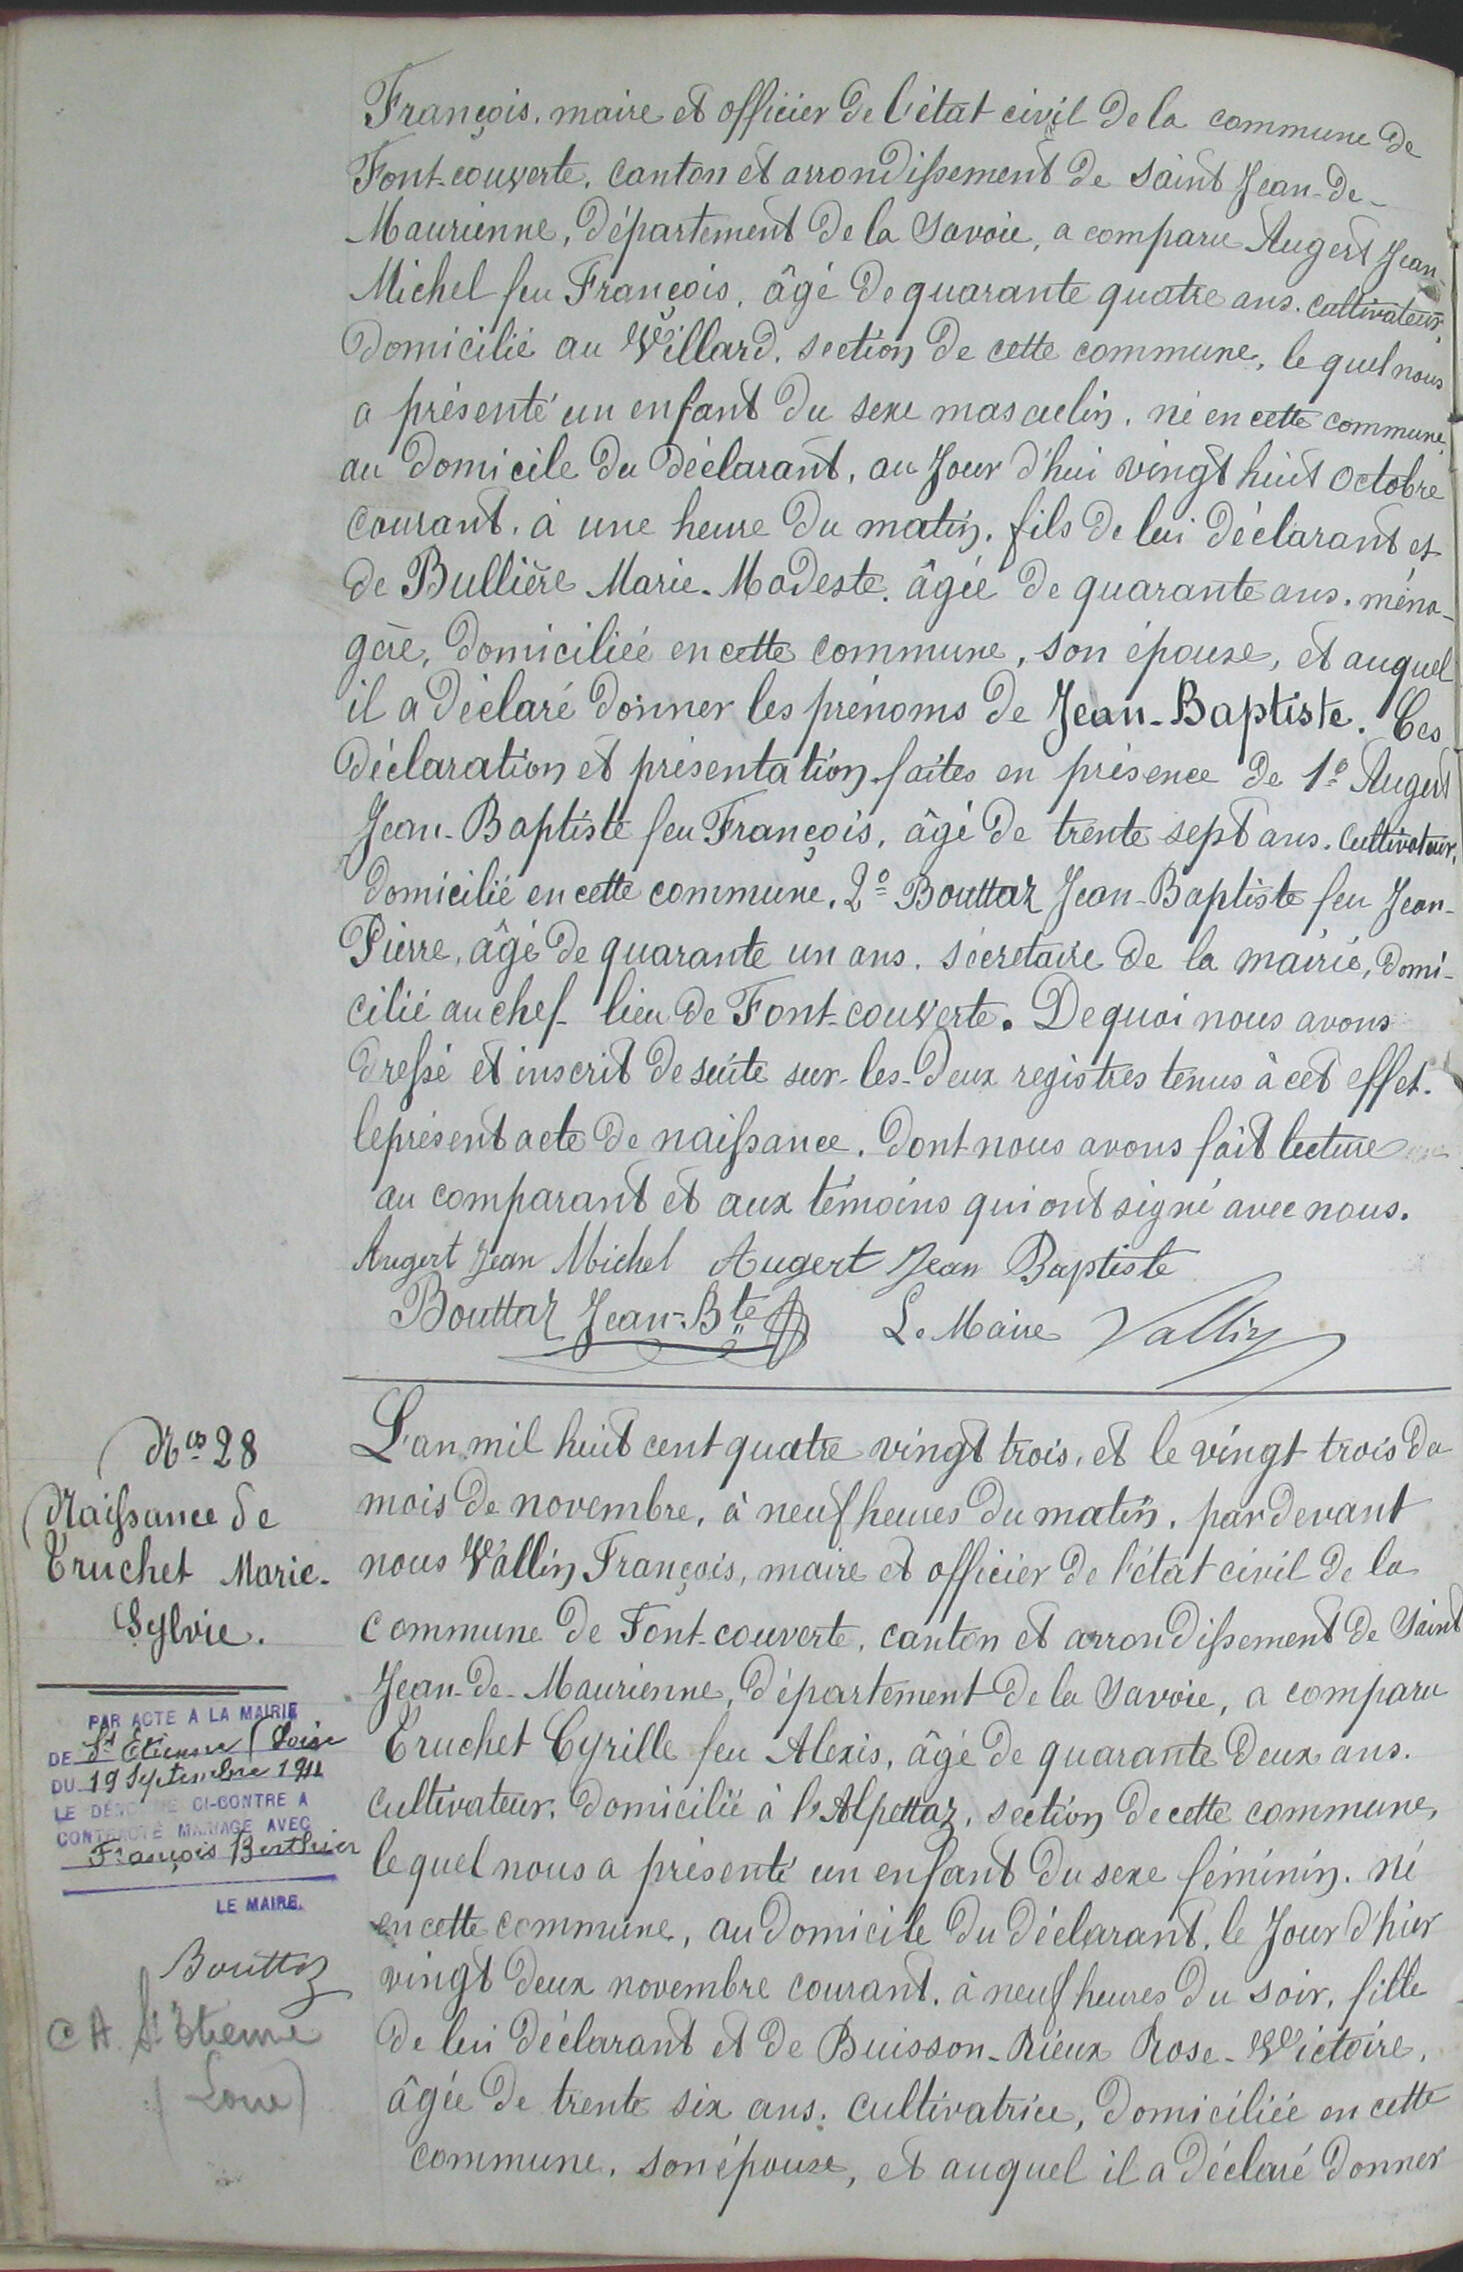 François, maire et officier de l'état civil de la commune de
Font-couverte, canton et arrondissement de saint Jean-de-
Maurienne, département de la Savoie, a comparu Augert Jean
Michel feu François, âgé de quarante quatre ans. cultivateur,
domicilié au Villard, section de cette commune, le quel nous
a présenté un enfant du sexe masculin, né en cette commune,
au domicile du déclarant, au jour d'hui vingt huit octobre
courant, à une heure du matin, fils de lui déclarant et
de Bullière Marie-Modeste, âgée de quarante ans, ména-
gère, domiciliée en cette commune, son épouse, et auquel
il a déclaré donner les prénoms de Jean-Baptiste. Ces
déclaration et présentation faites en présence de 1º Augert
Jean-Baptiste feu François, âgé de trente sept ans, cultivateur,
domicilié en cette commune, 2º Bouttaz Jean-Baptiste feu Jean-
Pierre, âgé de quarante un ans, sécretaire de la mairie, domi-
cilié au chef-lieu de Font-couverte. De quoi nous avons
dressé et inscrit de suite sur-les-deux registres tenus à cet effet.
le présent acte de naissance, dont nous avons fait lecture
au comparant et aux témoins qui ont signé avec nous.
Augert Jean Michel Augert Jean Baptiste
Bouttaz Jean-Bte Le Maire Vallin
Nos 28
Naissance de
Truchet Marie-
Sylvie.
PAR ACTE A LA MAIRIE
DE St Etienne (Loire
DU 19 Septembre 1911
LE DÉNOMMÉ CI-CONTRE A
CONTRACTÉ MARIAGE AVEC
François Berthier
LE MAIRE.
Bouttaz
St Etienne
(Loire)
L'an mil huit cent quatre vingt trois, et le vingt trois du
mois de novembre, à neuf heures du matin, par devant
nous Vallin François, maire et officier de l'état civil de la
commune de Font-couverte, canton et arrondissement de Saint
Jean-de-Maurienne, département de la Savoie, a comparu
Truchet Cyrille feu Alexis, âgé de quarante deux ans.
cultivateur, domicilié à l'Alpettaz, section de cette commune,
lequel nous a présenté un enfant du sexe féminin, né
en cette commune, au domicile du déclarant, le jour d'hier
vingt deux novembre courant, à neuf heures du soir, fille
de lui déclarant et de Buisson-Rieux Rose-Victoire,
âgée de trente six ans, cultivatrice, domiciliée en cette
commune, son épouse, et auquel il a déclaré donner